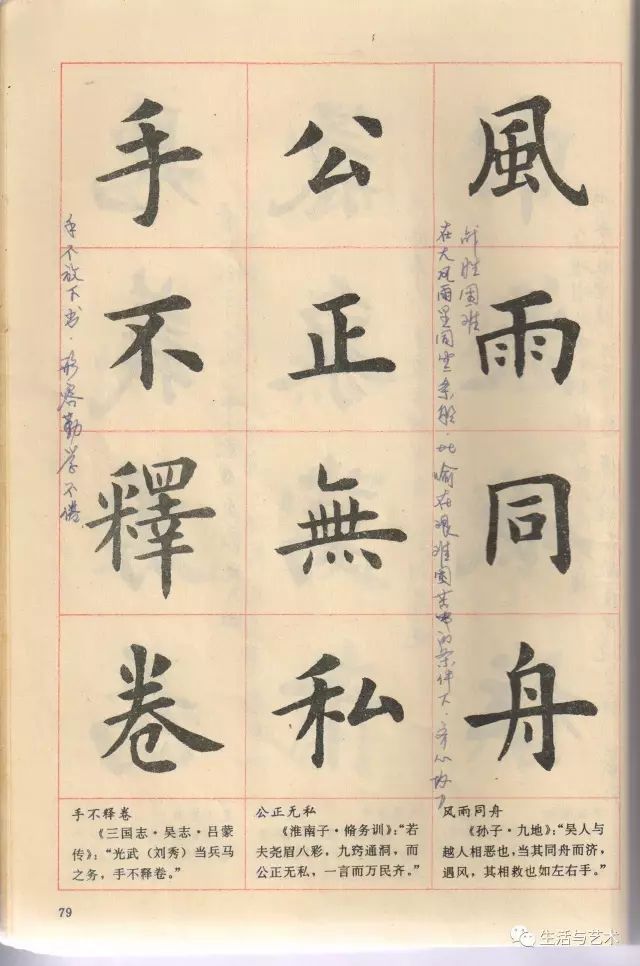 風雨同舟
在大风雨里同坐一条船·比喻在艰难困苦的条件下·齐心协力
战胜困难
公正無私
手不釋卷
手不放下书·形容勤学不倦
风雨同舟
《孙子·九地》:“吴人与
越人相恶也,当其同舟而济,
遇风,其相救也如左右手。”
公正无私
《淮南子·脩务训》:“若
夫尧眉八彩,九窍通洞,而
公正无私,一言而万民齐。”
手不释卷
《三国志·吴志·吕蒙
传》:“光武(刘秀)当兵马
之务,手不释卷。”
79
生活与艺术